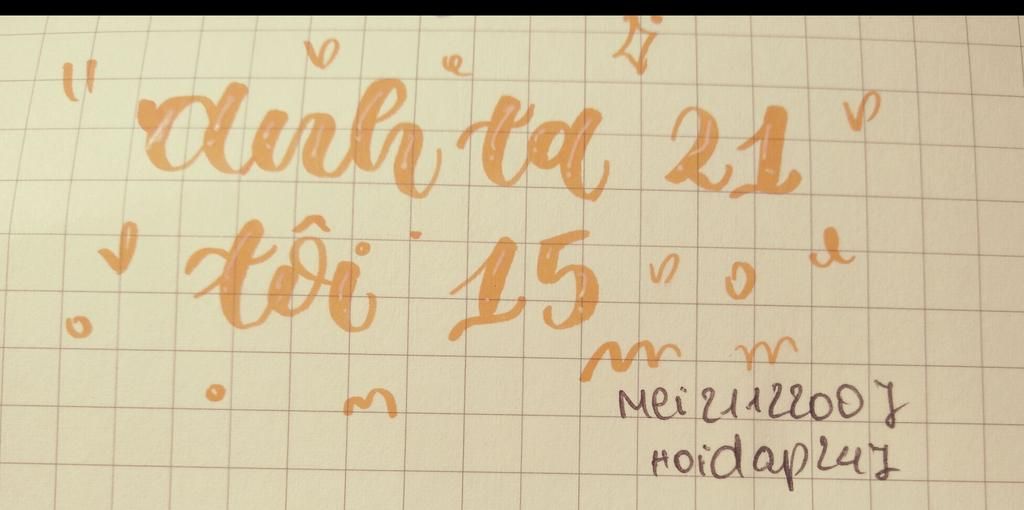 " anh ta 21
tôi 15
Mei21122007
Hoidap247